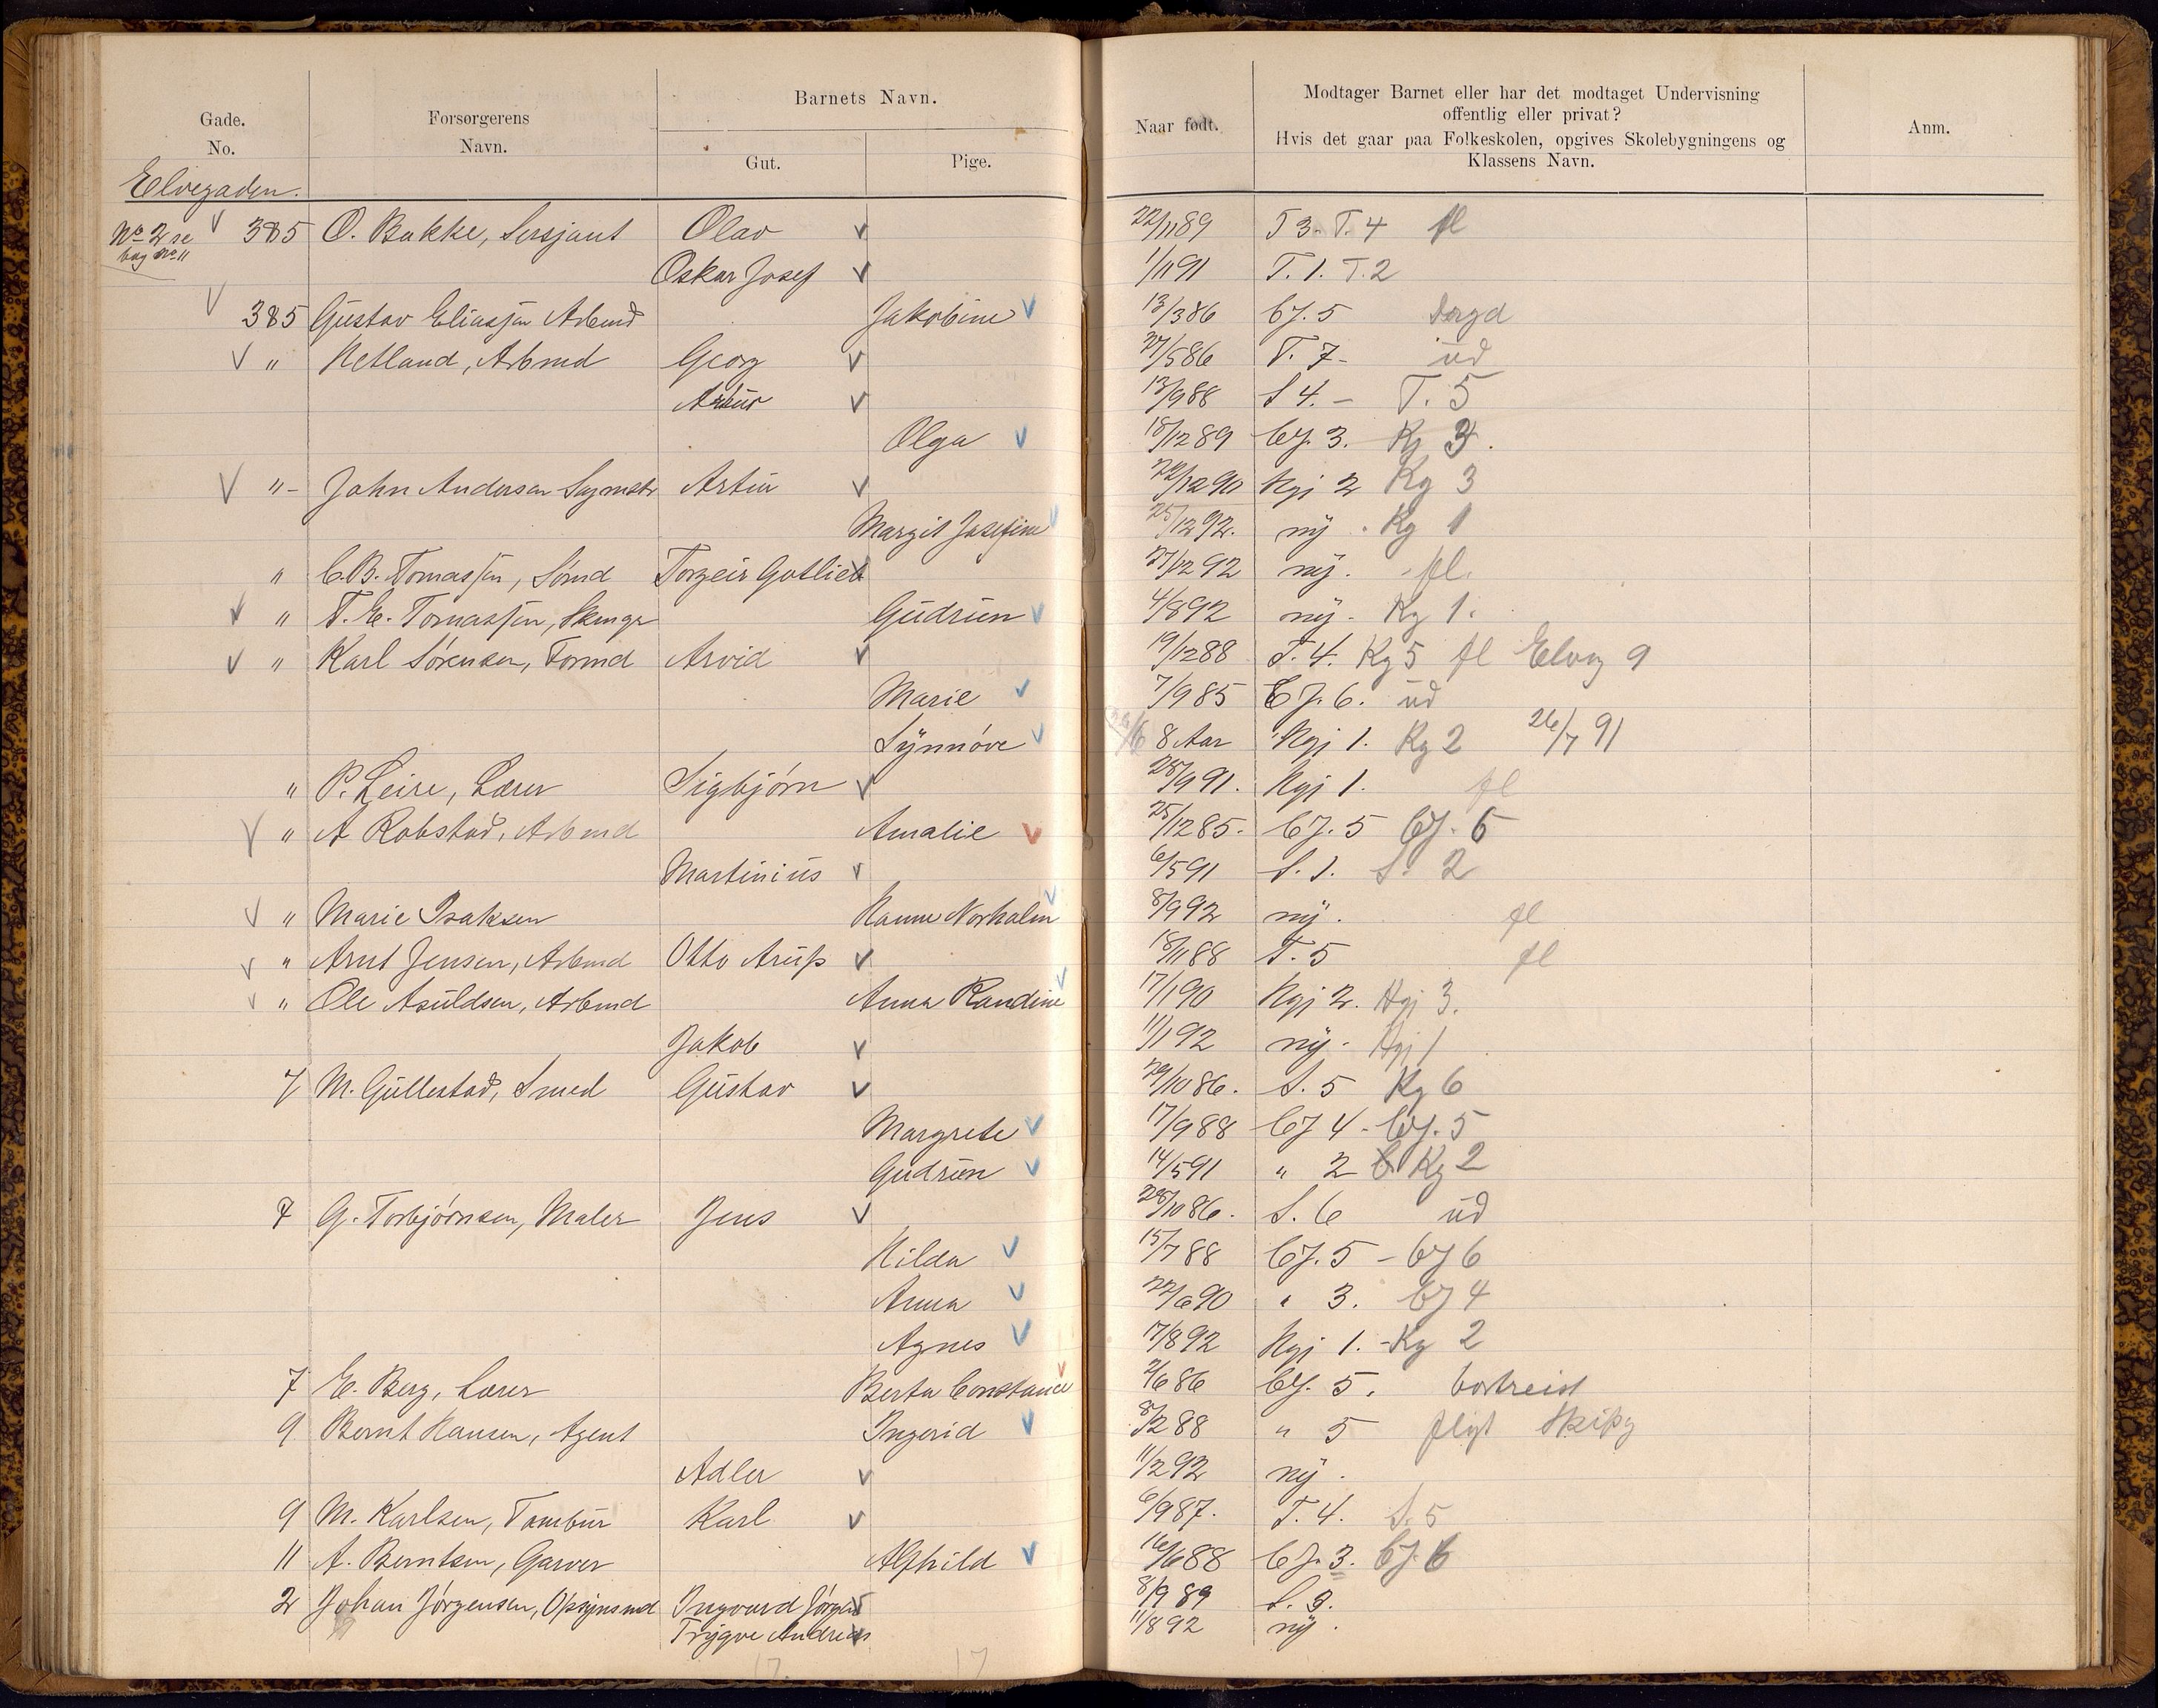 Gade. No.
Forsørgerens Navn.
Barnets Navn.
Gut.
Pige.
Naar født.
Modtager Barnet eller har det modtaget Undervisning
offentlig eller privat?
Hvis det gaar paa Folkeskolen, opgives Skolebygningens og
Klassens Navn.
Anm.
Elvegaden.
No 2 se
bag No 11
385 O. Bakke, Sersjant Olav 22/11 89 T. 4 fl
Oskar Josef 1/11 91 T. 1. T. 2
385 Gustav Eliassen Arbmd Jakobine 13/3 86 CJ. 5
" Netland, Arbmd Georg 27/5 86 T. 7 - ud
Artur 13/9 88 S 4. - T. 5
Olga 18/12 89 CJ. 3. Kg
" - John Andersen Artur 12 90 Kgj 2 Kg 3
Margit Josefine 25/12 92. ny . Kg 1
" C.B. Tomassen, Sømd Torgeir Gotlieb 27/12 92 ny. - fl.
" T. E. Tomassen, Gudrun 4/8 92 ny. Kg 1.
" Karl Sørensen, Formd Arvid 19/12 88 T. 4. Kg 5 fl Elvg 9
Marie 7/9 85 CJ. 6. ud
Synnøve 8 Aar Kgj 1. Kg 2 26/7 91
" P. Leire, Lærer Sigbjørn 28/9 91. Kgj 1. fl
" A Robstad, Arbmd Amalie 25/12 85. CJ. 5 CJ. 6
Martinius 6/5 91 S. 1. S. 2
" Marie Isaksen Norholm 8/9 92 ny. fl
" Arnt Jensen, Arbmd Otto 18/11 88 T. 5 fl
" Ole Asuldsen, Arbmd Anna Randine 17/1 90 Kgj 2. Kgj 3.
Jakob 11/1 92 ny. Kgj 1
7 M. Gullestad, Smed Gustav 29/10 86. S. 5 Kg 6
Margrete 17/9 88 CJ 4 - CJ. 5
Gudrun 14/5 91 " 2 Kg 2
7 G. Torbjørnsen, Maler Jens 28/10 86. S. 6 ud
Hilda 15/7 88 CJ. 5 - CJ 6
Anna 22/6 90 " 3. CJ 4
Agnes 17/8 92 Kgj 1. - Kg 2
7 E. Berg, Lærer Berta Constance 2/6 86 CJ. 5. bortreist
9 Bernt Hansen, Agent Ingerid 8/2 88 " 5 flyt Skipg
Adler 11/2 92 ny.
9 M. Karlsen, Tambur Karl 6/9 87. T. 4. S. 5
11 A. Berntsen, Garver Alfhild 16/6 88 CJ. 3. CJ. 6
2 Johan Jørgensen, Opsynsmd Ingvard Jørgen 8/9 89 S. 3.
Trygve Andreas 11/8 92 ny.
17. 17